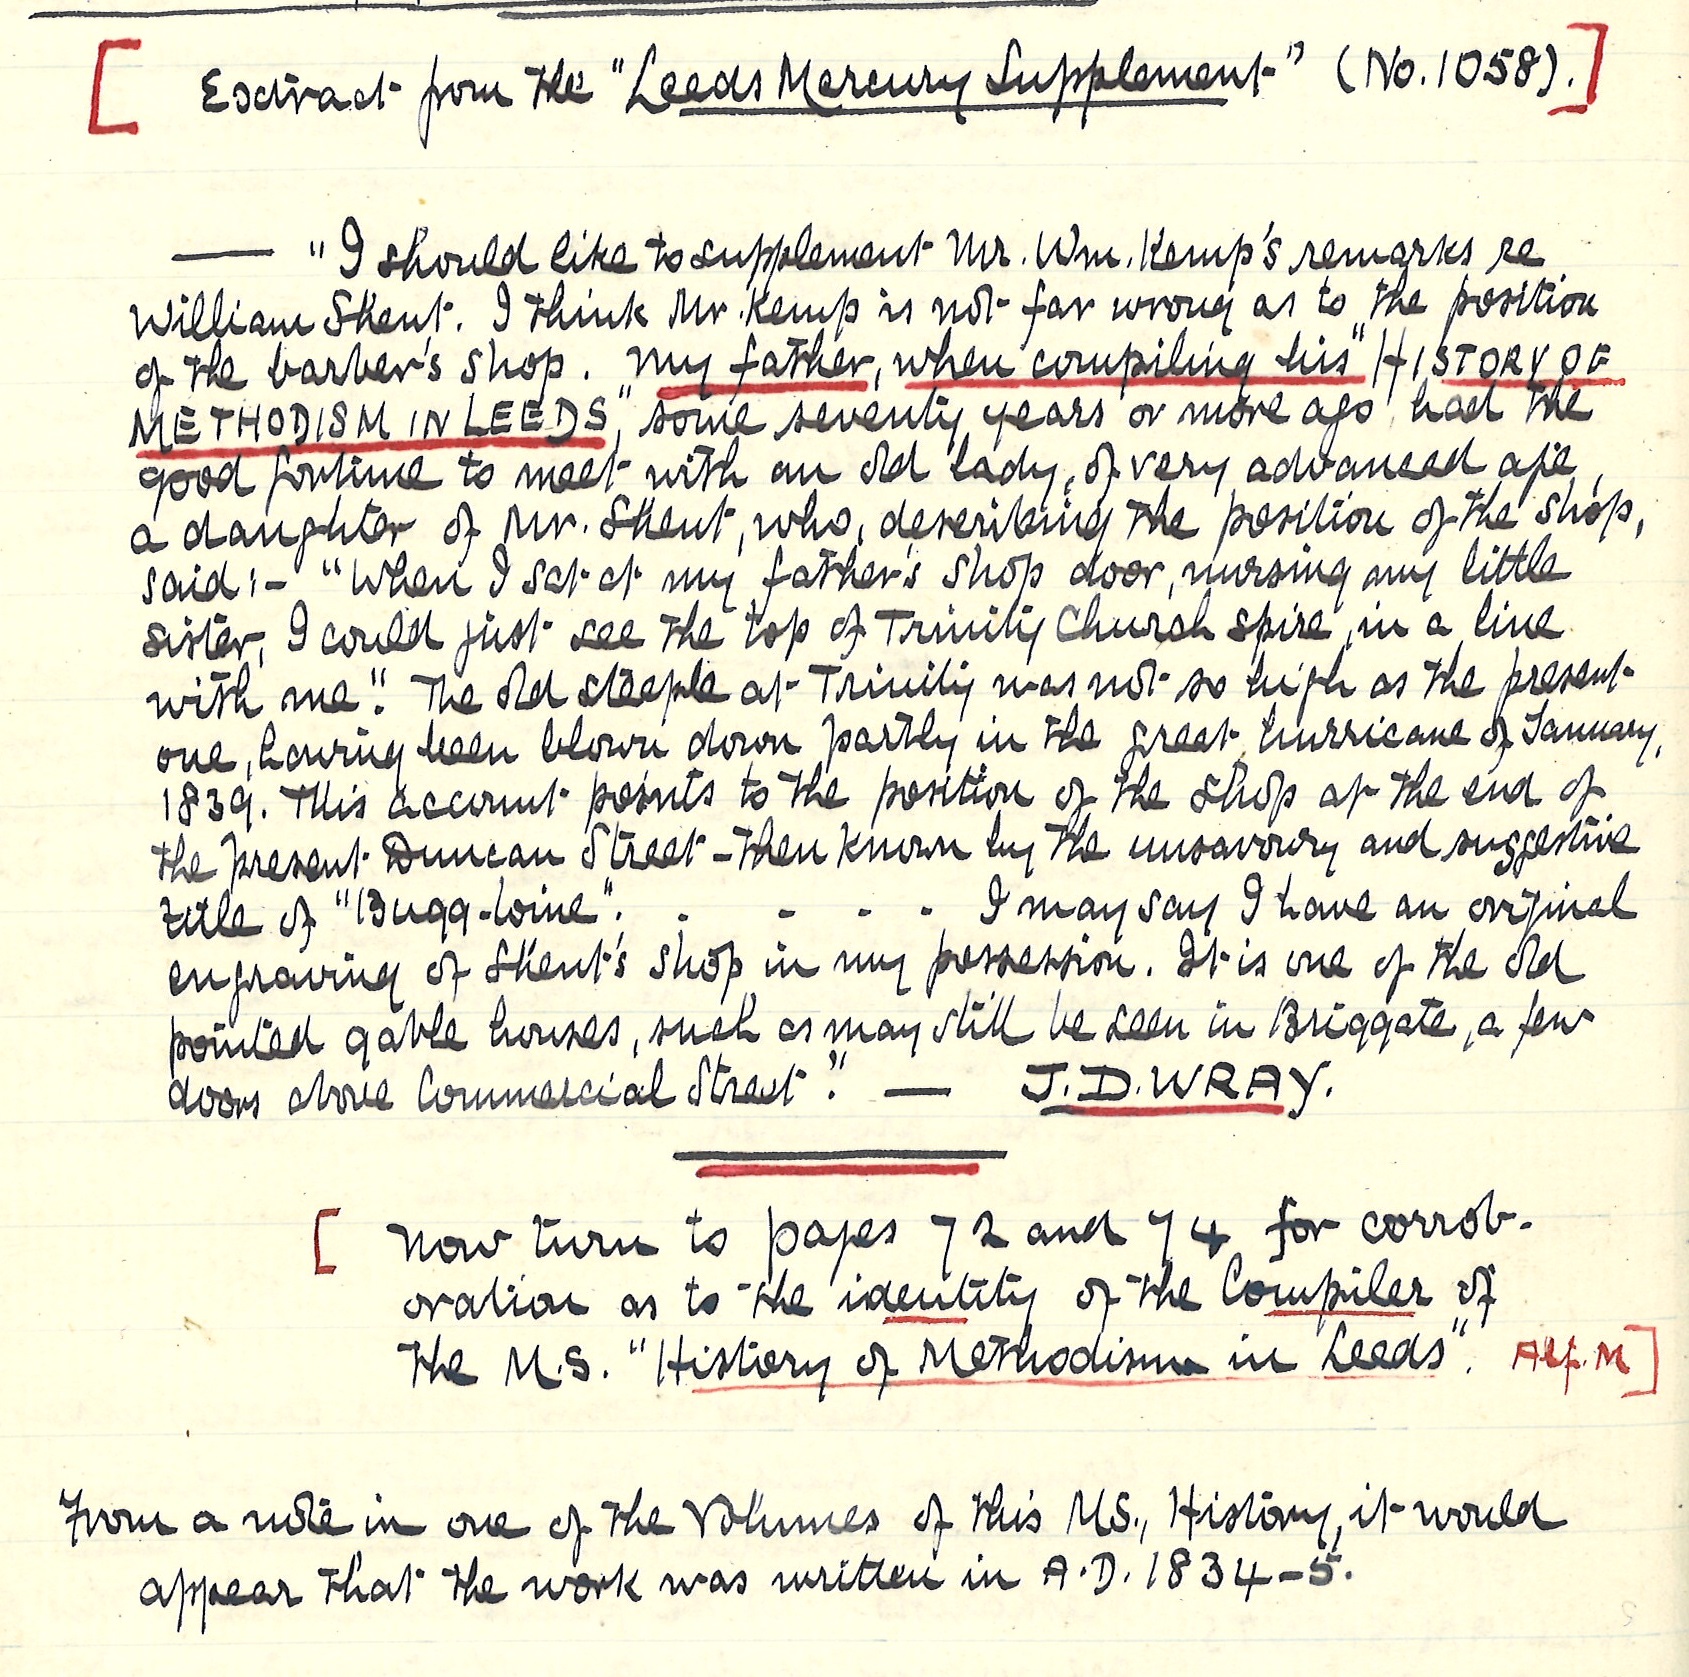 [ Extract from the "Leeds Mercury Supplement" (No. 1058). ]
— "I should like to supplement Mr. Wm. Kemp's remarks re
William Shent. I think Mr. Kemp is not far wrong as to the position
of the barber's shop. My father, when compiling his "HISTORY OF
METHODISM IN LEEDS", some seventy years or more ago had the
good fortune to meet with an old lady, of very advanced age,
a daughter of Mr. Shent, who, describing the position of the shop,
said:- "When I sat at my father's shop door, nursing my little
sister, I could just see the top of Trinity Church spire, in a line
with me". The old steeple at Trinity was not so high as the present
one, having been blown down partly in the great hurricane of January,
1839. This account points to the position of the shop at the end of
the present Duncan Street - then known by the unsavoury and suggestive
title of "Bugg-loine". . - . - . I may say I have an original
engraving of Shent's shop in my possession. It is one of the old
pointed gable houses, such as may still be seen in Briggate, a few
doors above Commercial Street". — J. D. WRAY.
[ Now turn to pages 72 and 74 for corrob-
oration as to the identity of the Compiler of
the M.S. "History of Methodism in Leeds". Alf. M ]
From a note in one of the Volumes of this MS., History, it would
appear that the work was written in A.D. 1834-5.